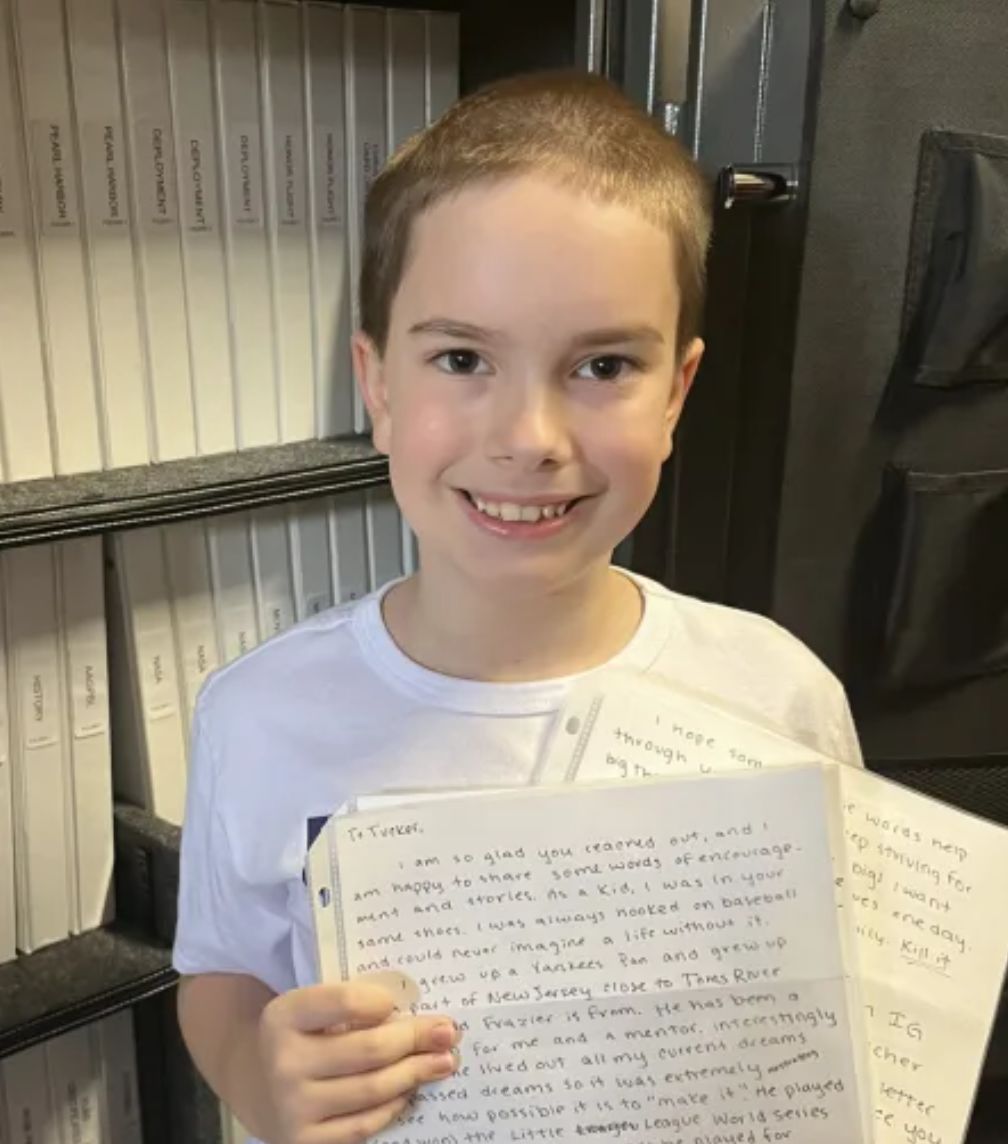 PEARL HARBOR
PEARL HARBOR
DEPLOYMENT
DEPLOYMENT
DEPLOYMENT
HONOR FLIGHT
HONOR FLIGHT
HISTORY
AAGPBL
NASA
NASA
To Tucker,
I am so glad you reached out, and I
am happy to share some words of encourage-
ment and stories. As a kid, I was in your
same shoes. I was always hooked on baseball
and could never imagine a life without it.
I grew up a Yankees fan and grew up
part of New Jersey close to Toms River
Frazier is from. He has been a
for me and a mentor. Interestingly
he lived out all my current dreams
passed dreams so it was extremely
see how possible it is to "make it". He played
(and won) the Little League World Series
he played for
I hope som
through
big th
e words help
ep striving for
big! I want
ves one day.
ily. Kill it
IG
cher
letter
ce you